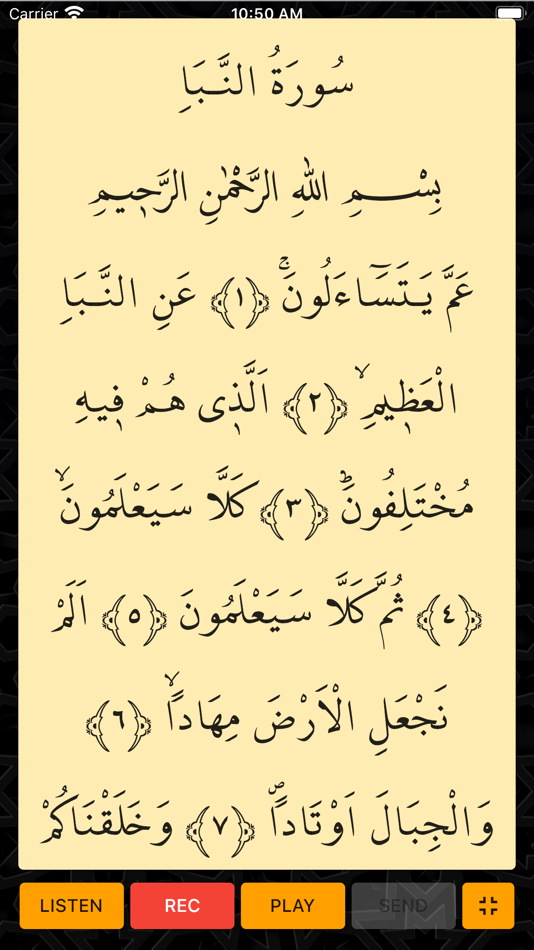 Carrier 10:50 AM
سُورَةُ النَّبَاِ
بِسْمِ اللهِ الرَّحْمٰنِ الرَّحٖيمِ
عَمَّ يَتَسَٓاءَلُونَۚ ﴿١﴾ عَنِ النَّبَاِ
الْعَظٖيمِۙ ﴿٢﴾ اَلَّذٖى هُمْ فٖيهِ
مُخْتَلِفُونَؕ ﴿٣﴾ كَلَّا سَيَعْلَمُونَۙ
﴿٤﴾ ثُمَّ كَلَّا سَيَعْلَمُونَ ﴿٥﴾ اَلَمْ
نَجْعَلِ الْاَرْضَ مِهَاداًۙ ﴿٦﴾
وَالْجِبَالَ اَوْتَاداًۖ ﴿٧﴾ وَخَلَقْنَاكُمْ
LISTEN REC PLAY SEND